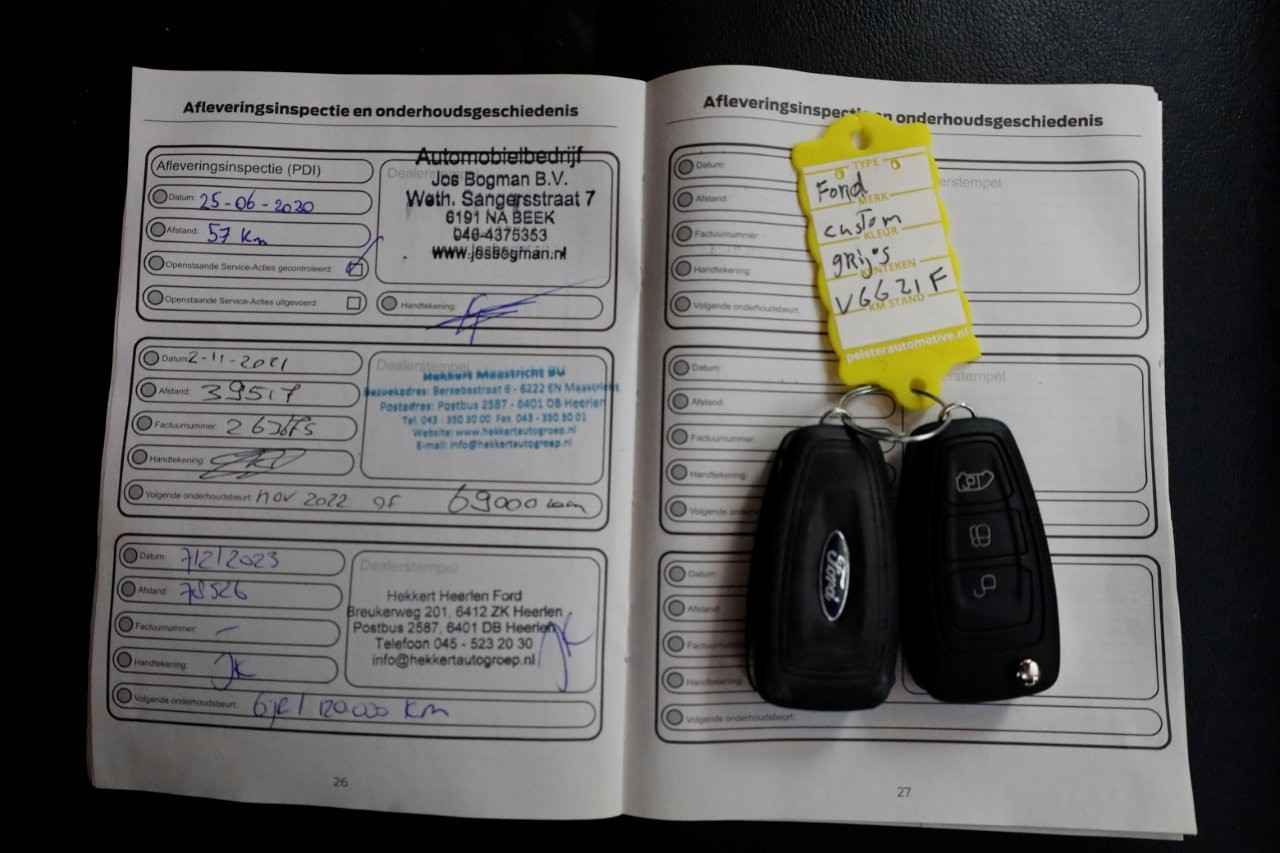 Afleveringsinspectie en onderhoudsgeschiedenis
Afleveringsinspectie (PDI)
Datum: 25-06-2020
Afstand: 57 Km
Openstaande Service-Acties gecontroleerd:
Openstaande Service-Acties uitgevoerd:
Automobielbedrijf
Jos Bogman B.V.
Weth. Sangersstraat 7
6191 NA BEEK
046-4375353
www.josbogman.nl
Handtekening:
Datum: 2-11-2021
Afstand: 39517
Factuurnummer:
Handtekening:
Volgende onderhoudsbeurt: nov 2022 of 69000 km
Dealerstempel
Hekkert Maastricht BV
Bezoekadres: Bersebastraat 6 - 6222 EN Maastricht
Postadres: Postbus 2587 - 6401 DB Heerlen
Tel. 043 - 350 30 00 Fax. 043 - 350 30 01
Website: www.hekkertautogroep.nl
E-mail: info@hekkertautogroep.nl
Datum: 7/2/2023
Afstand: 78526
Factuurnummer: -
Handtekening: JK
Volgende onderhoudsbeurt: 120.000 Km
Dealerstempel
Hekkert Heerlen Ford
Breukerweg 201, 6412 ZK Heerlen
Postbus 2587, 6401 DB Heerlen
Telefoon 045 - 523 20 30
info@hekkertautogroep.nl
26
Afleveringsinspectie en onderhoudsgeschiedenis
Datum:
Afstand:
Factuurnummer:
Handtekening:
Volgende onderhoudsbeurt:
Datum:
Afstand:
Factuurnummer:
Handtekening:
Datum:
Afstand:
Handtekening:
Volgende onderhoudsbeurt:
27
TYPE
Ford
MERK
custom
KLEUR
grijs
KENTEKEN
V6621F
KM STAND
pelsterautomative.nl
Ford